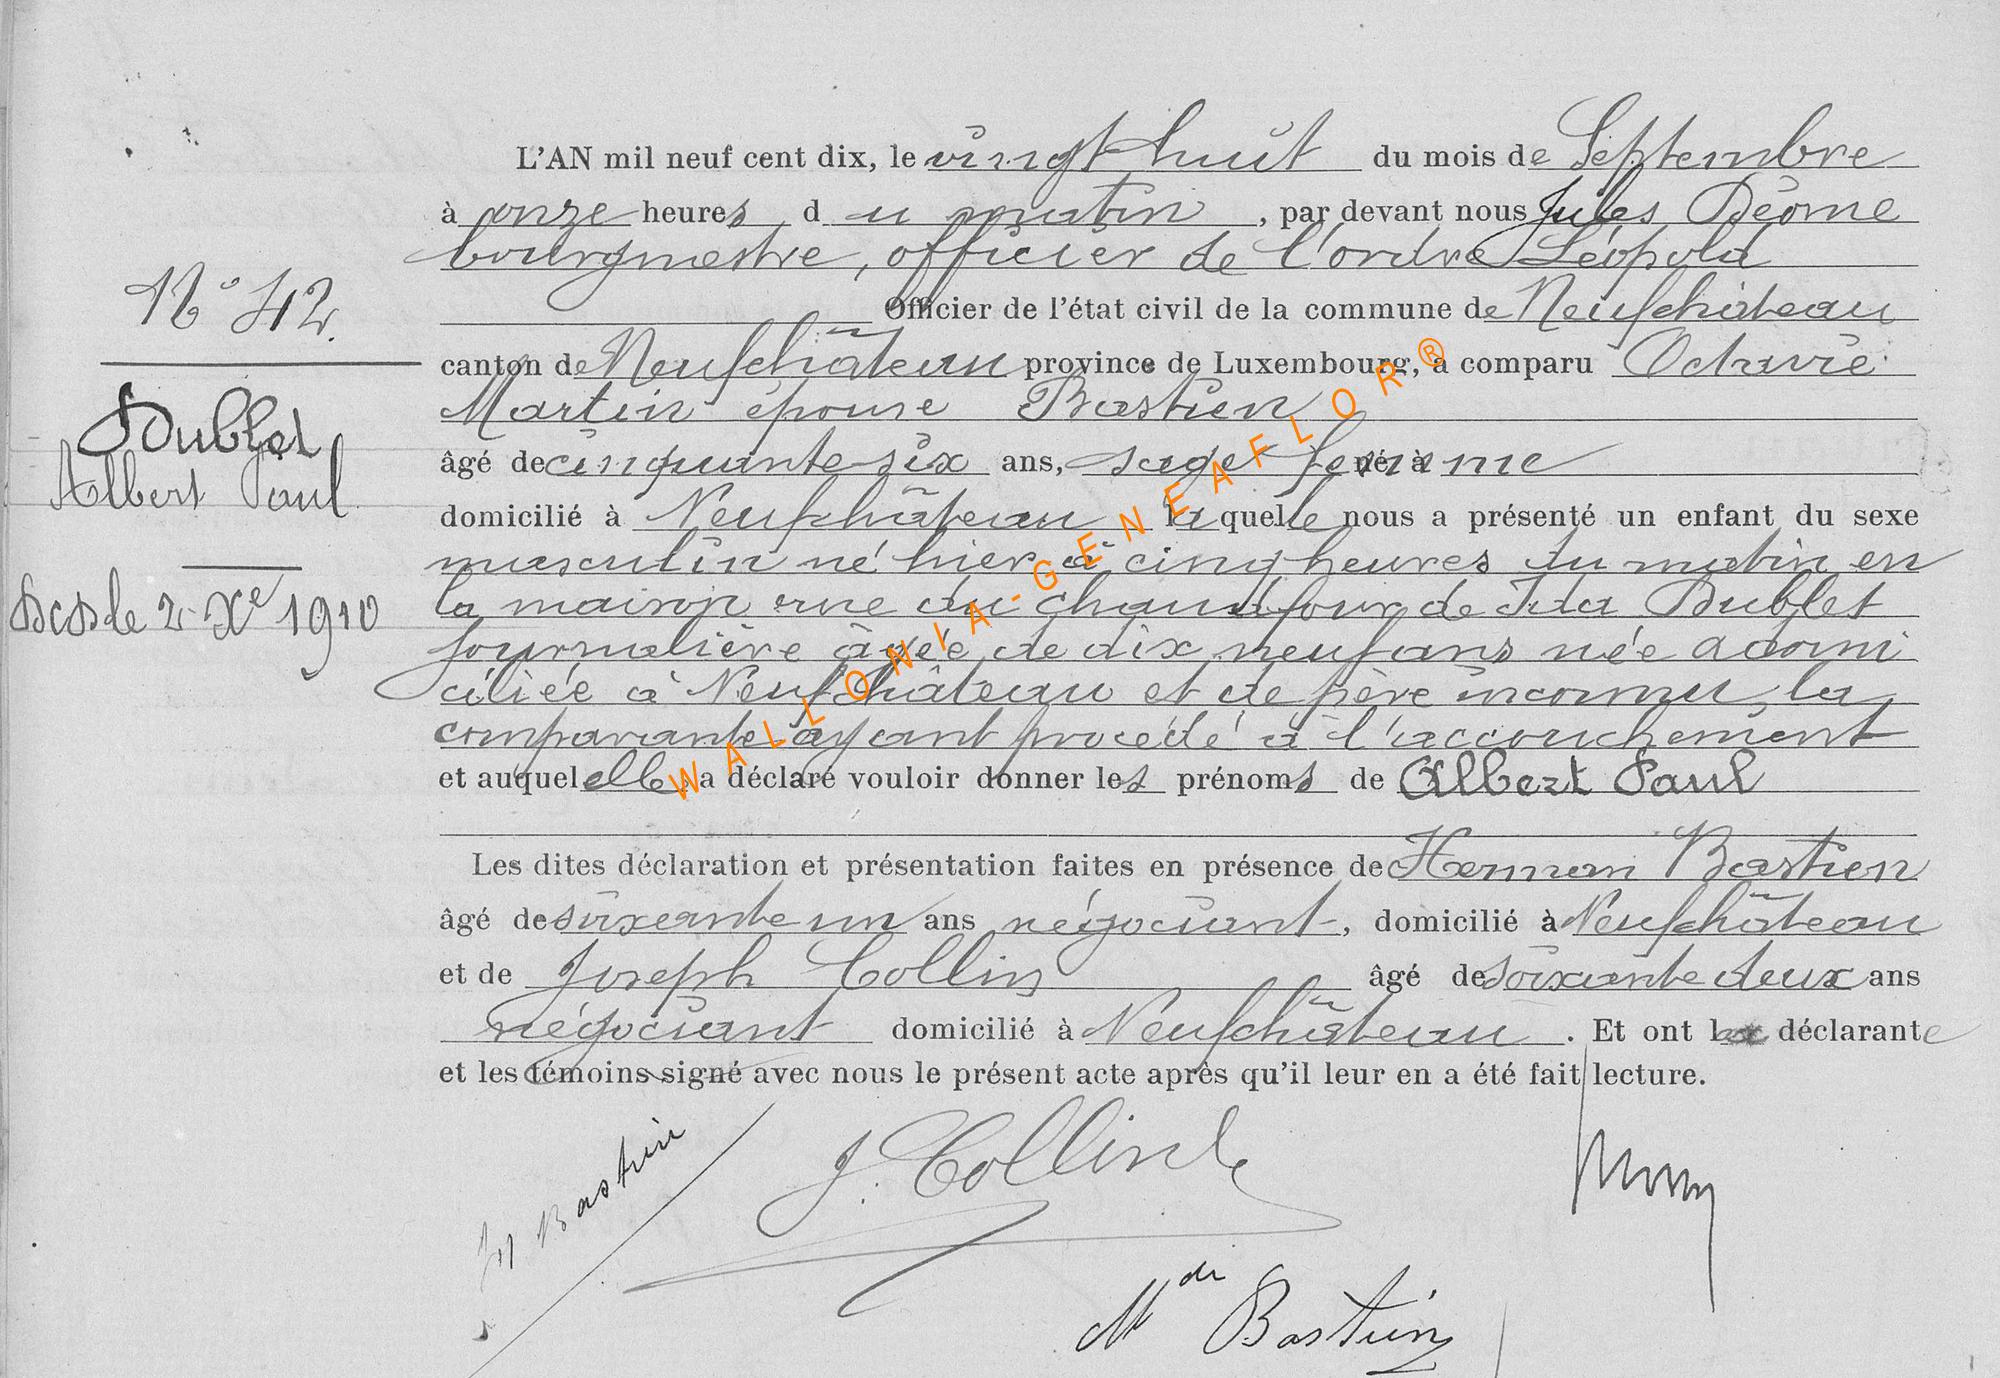 L'AN mil neuf cent dix, le vingt huit du mois de Septembre
à onze heures du matin, par devant nous Jules
bourgmestre, officier de l'ordre Léopold
Officier de l'état civil de la commune de Neufchâteau
canton de Neufchâteau province de Luxembourg, a comparu Octavie
Martin épouse Bastien
âgé de cinquante six ans, sage femme né à
domicilié à Neufchâteau laquelle nous a présenté un enfant du sexe
masculin né hier à cinq heures du matin en
la maison rue du chaudfour de Ida Dublet
journalière âgée de dix neuf ans née a domi
ciliée à Neufchâteau et de père inconnu, la
comparante ayant procédé à l'accouchement
et auquel elle a déclaré vouloir donner les prénoms de Albert Paul
Les dites déclaration et présentation faites en présence de Herman Bastien
âgé de soixante un ans négociant, domicilié à Neufchâteau
et de Joseph Collin âgé de soixante deux ans
négociant domicilié à Neufchâteau. Et ont la déclarante
et les témoins signé avec nous le présent acte après qu'il leur en a été fait lecture.
N° 42.
Dublet
Albert Paul
le 2 Xe 1910
Bastien
J. Collin
Bastien
WALLONIA-GENEAFLOR®